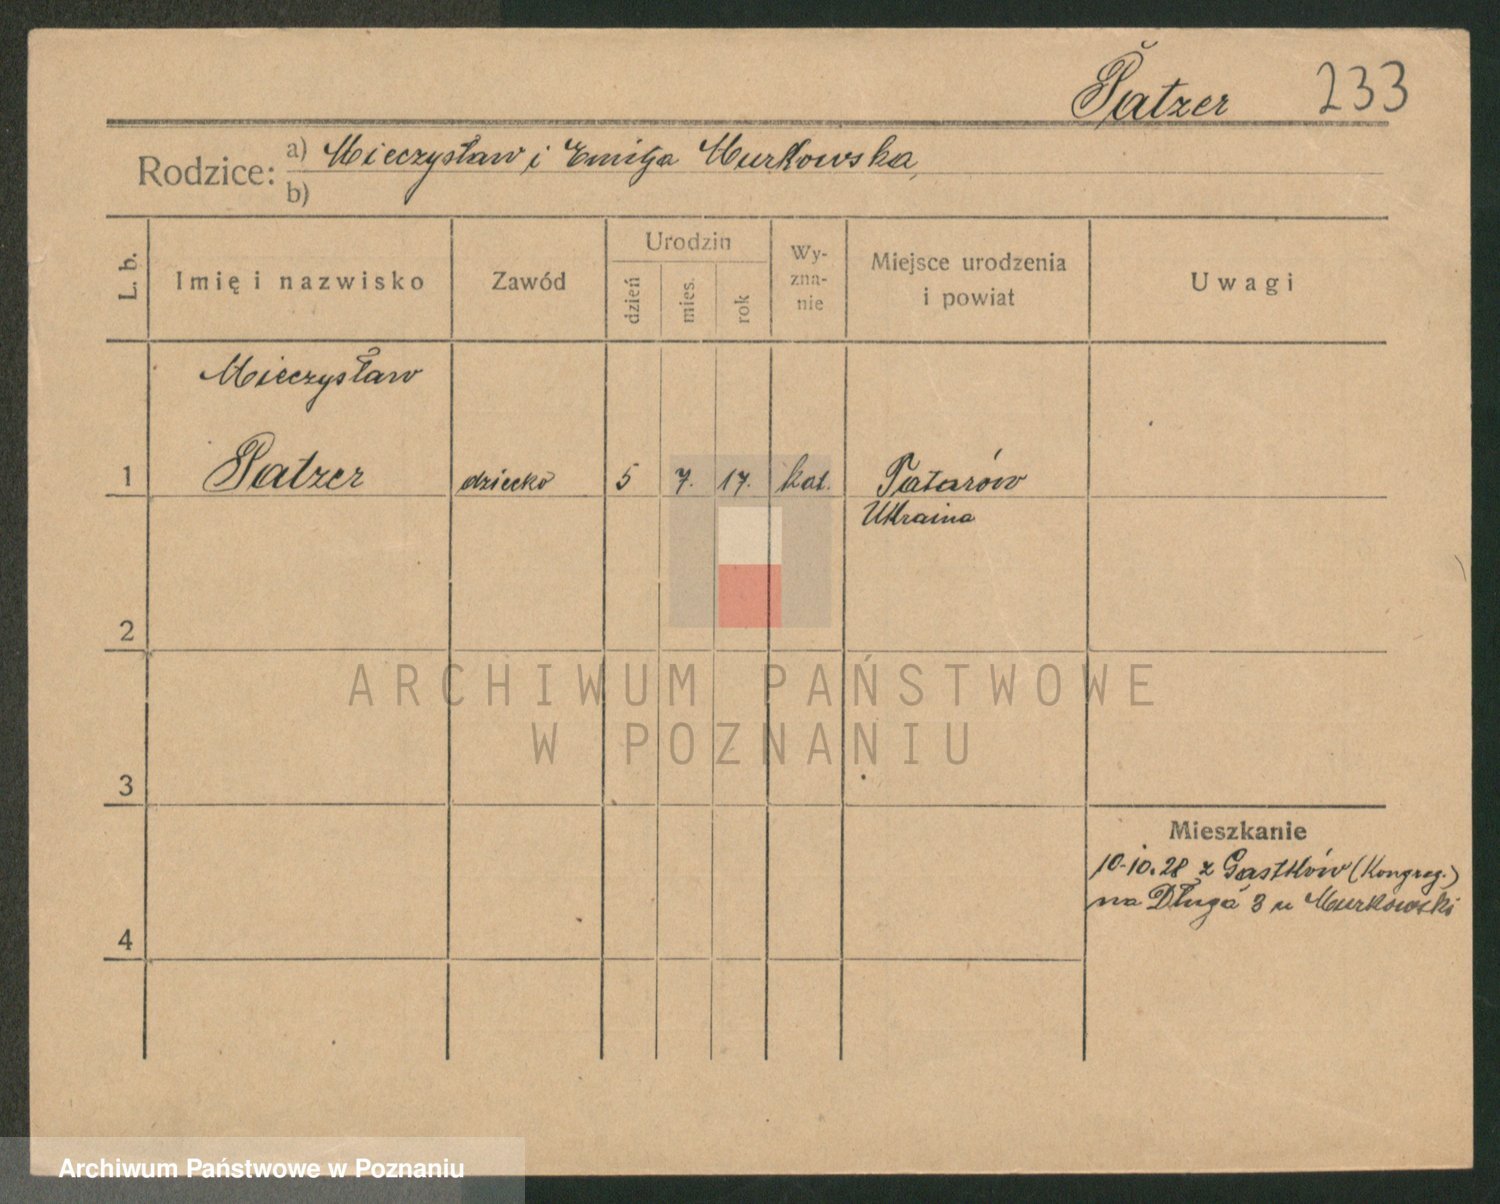 Patzer 233
Rodzice: a) Mieczysław i Emilja Murkowska,
b)
L. b. Imię i nazwisko Zawód Urodzin dzień mies. rok Wy-zna-nie Miejsce urodzenia i powiat Uwagi
Mieczysław
1 Patzer dziecko 5 7. 17. kat. Tatarów
Ukraina
2
ARCHIWUM PAŃSTWOWE
W POZNANIU
3
Mieszkanie
10.10.28 z (Kongreg.)
na Długą 3 u Murkowski
4
Archiwum Państwowe w Poznaniu